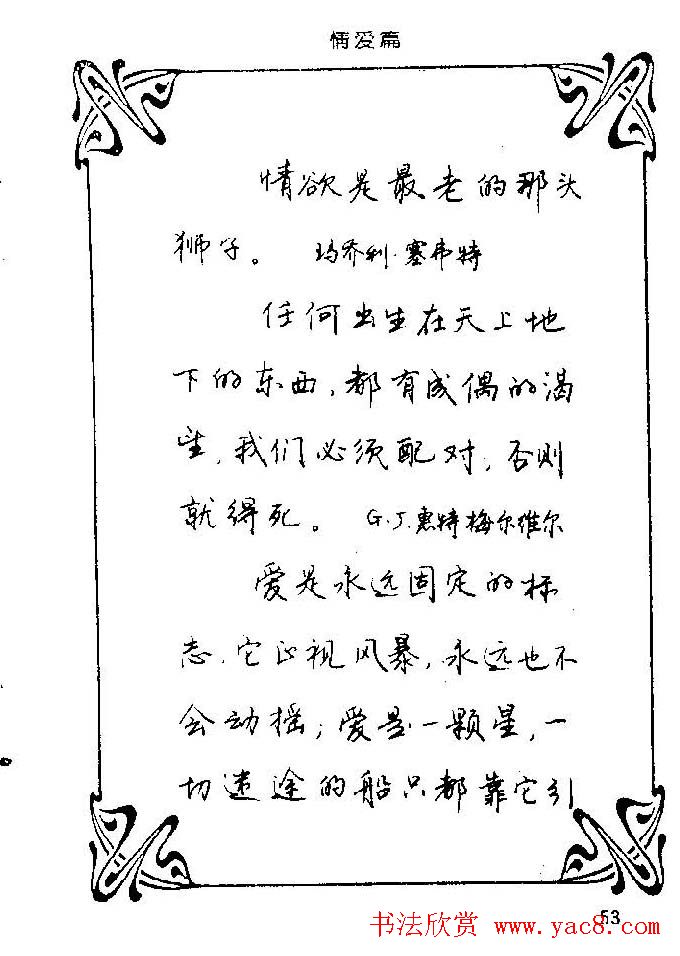 情爱篇
情欲是最老的那头
狮子。 玛乔利·塞弗特
任何出生在天上地
下的东西，都有成偶的渴
望，我们必须配对，否则
就得死。 G.J.惠特梅尔维尔
爱是永远固定的标
志，它正视风暴，永远也不
会动摇；爱是一颗星，一
切迷途的船只都靠它引
53
书法欣赏 www.yac8.com